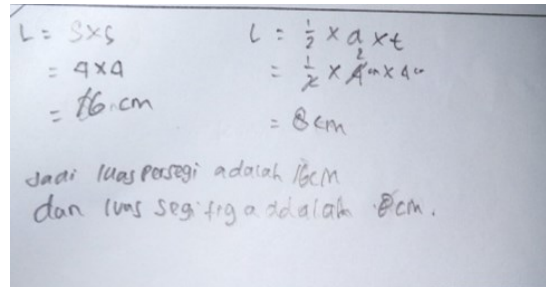 L = S×S
= 4×4
= 16 cm
L = 1/2 × a × t
= 1/2 × 4 cm × 4 cm
2
= 8 cm
Jadi luas persegi adalah 16cm
dan luas segitiga addalah 8cm.